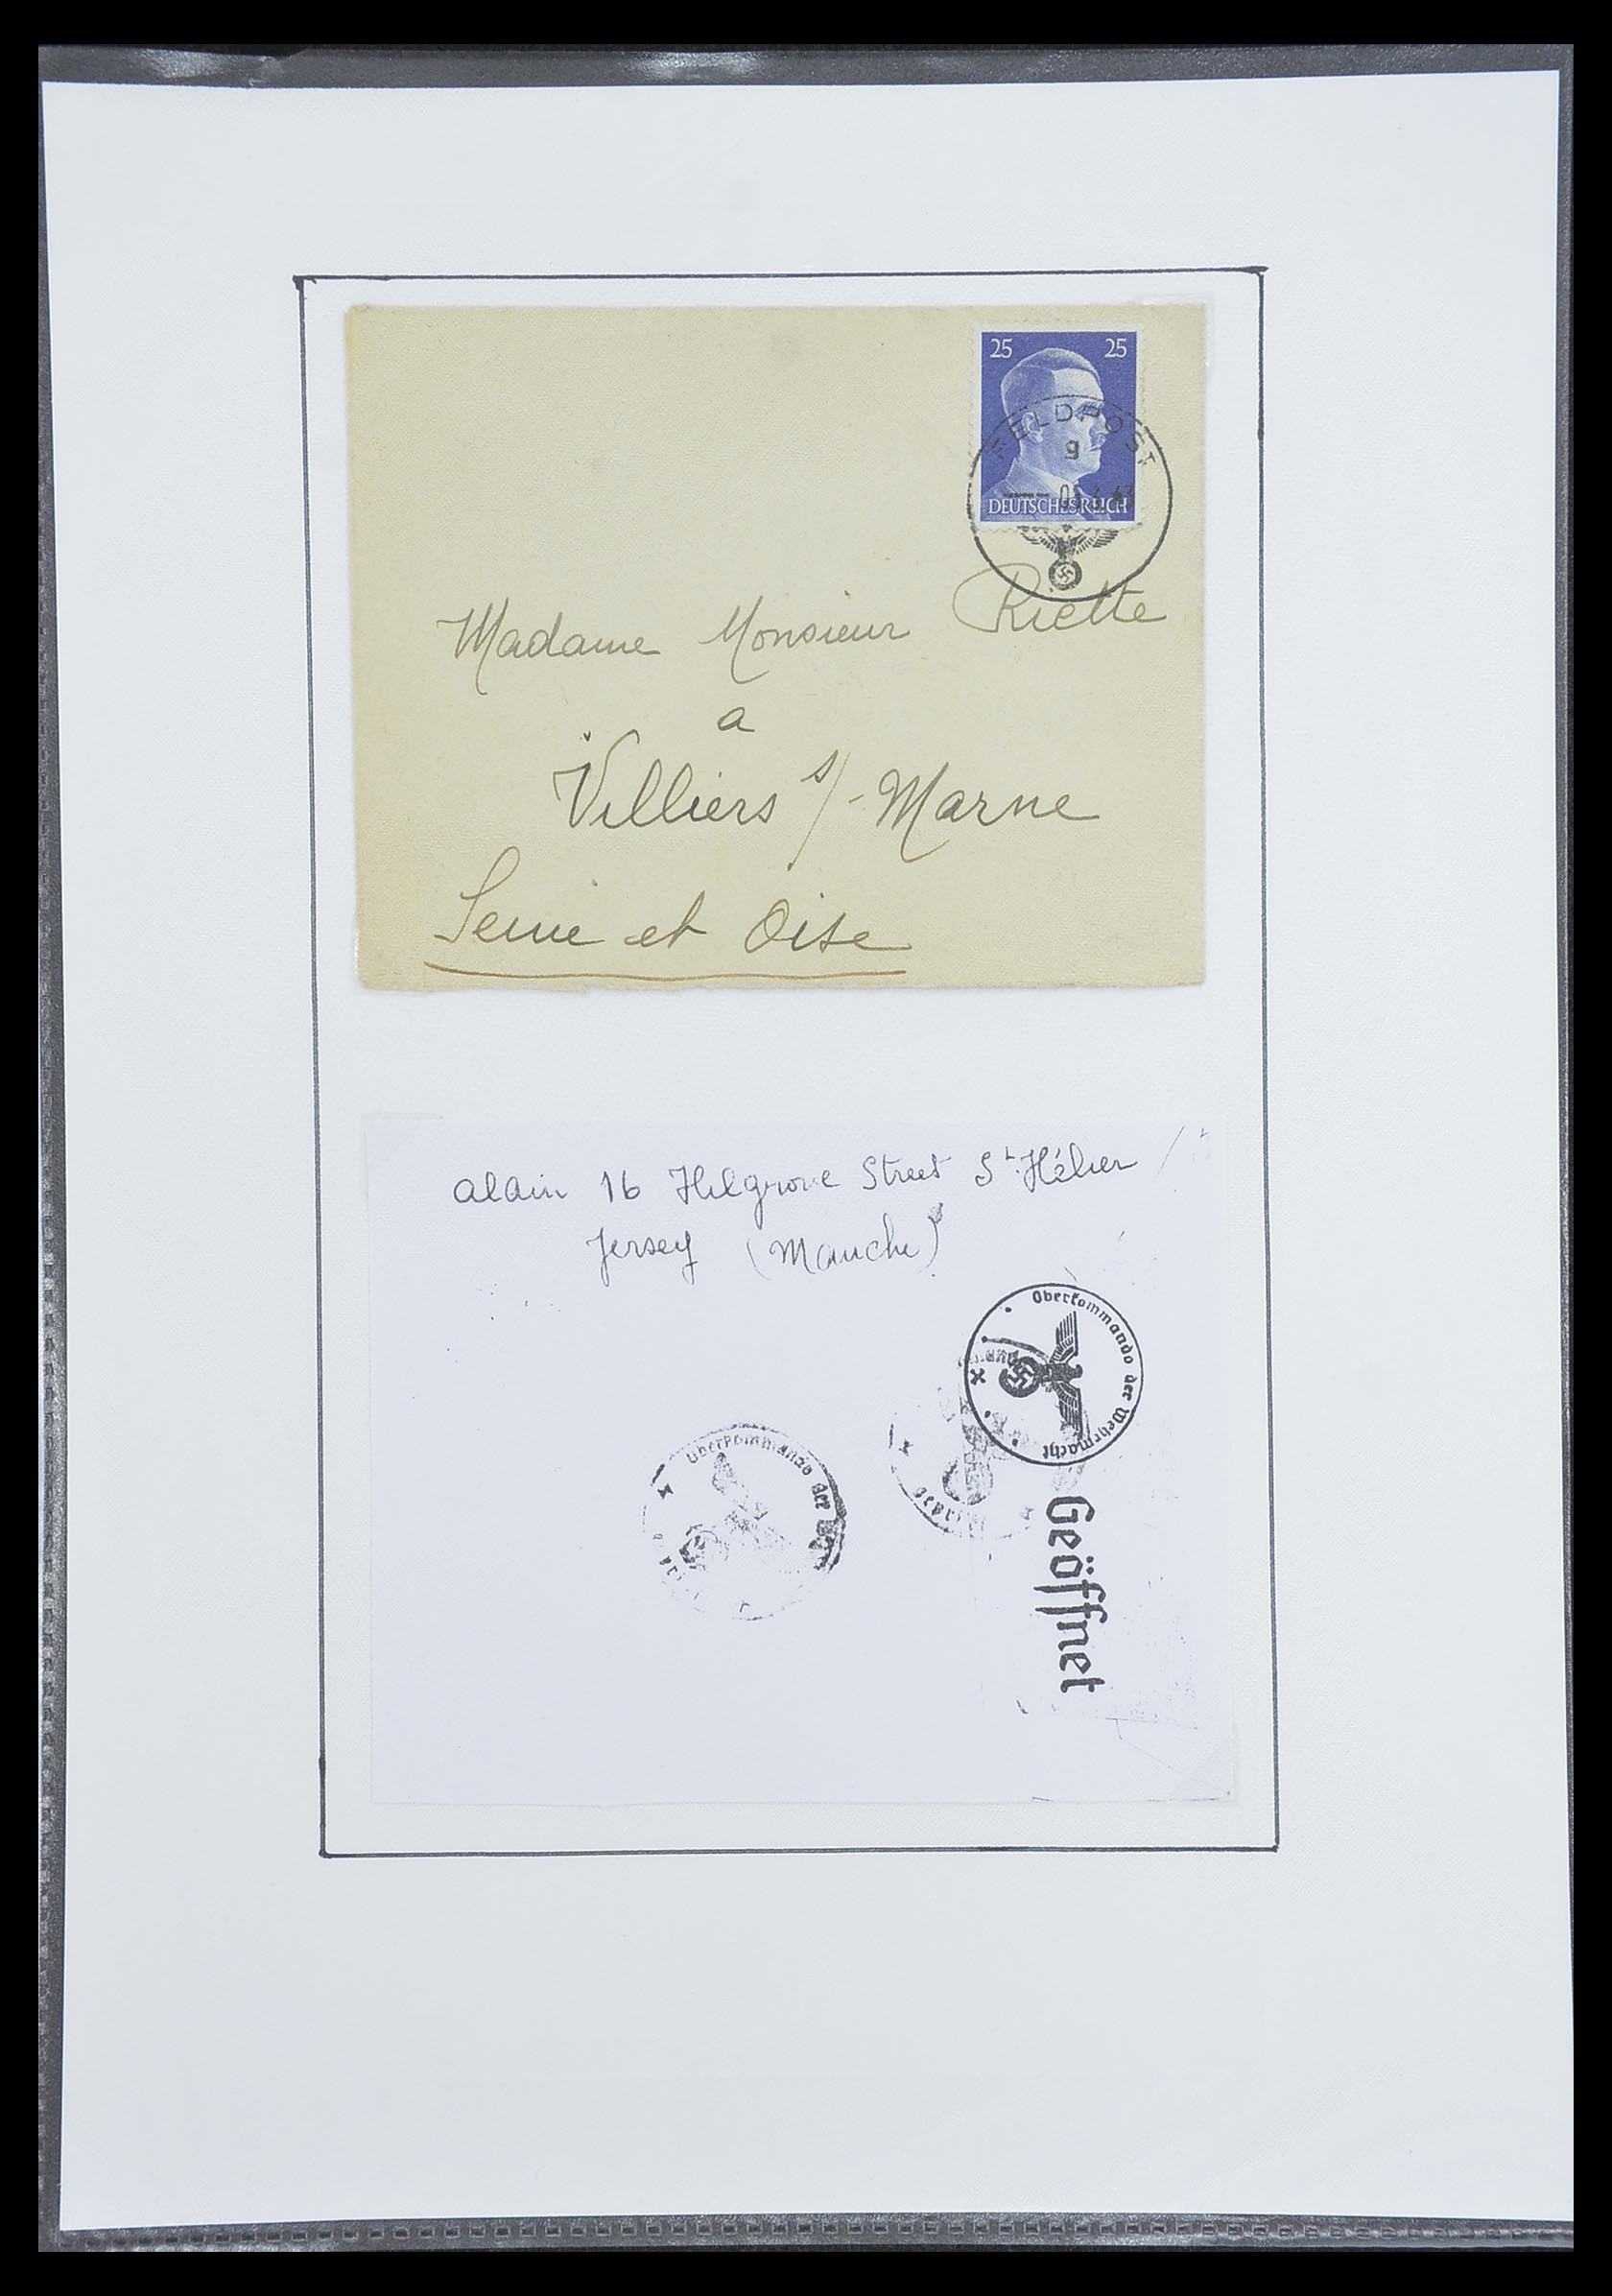 25 25
FELDPOST
g
DEUTSCHES REICH
Madame Monsieur Riette
a
Villiers s/-Marne
Seine et Oise
alain 16 Hilgrove Street St Hélier
Jersey (Manche)
Oberkommando der Wehrmacht
Geöffnet
Oberkommando der